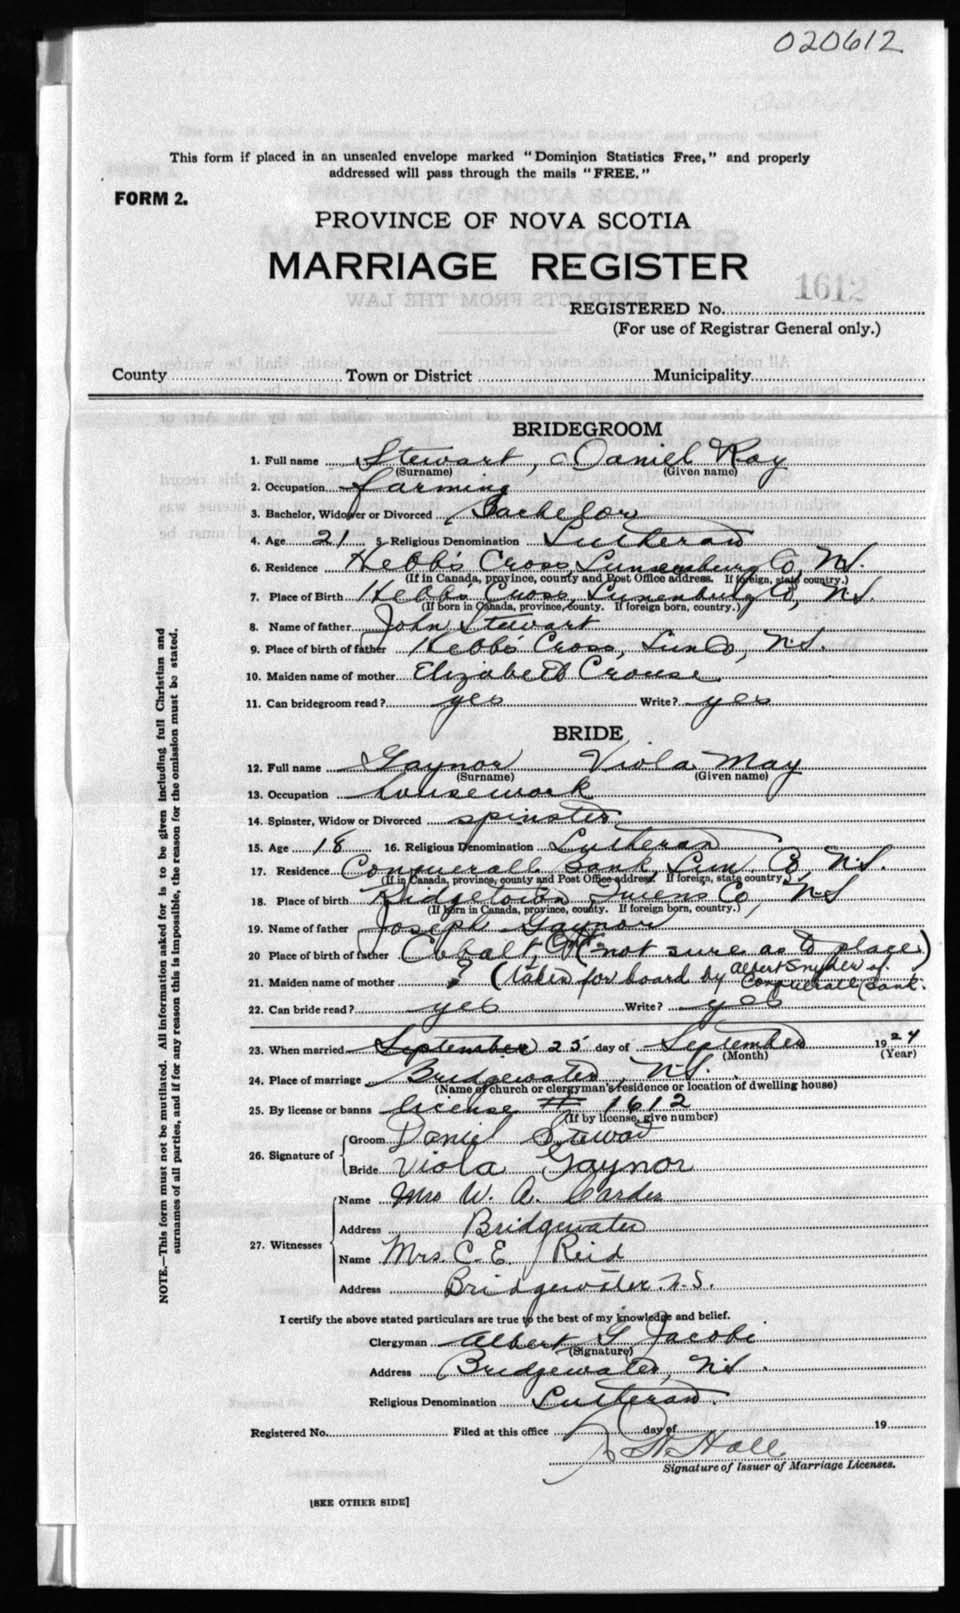 020612
This form if placed in an unsealed envelope marked "Dominion Statistics Free," and properly
addressed will pass through the mails "FREE."
FORM 2.
PROVINCE OF NOVA SCOTIA
MARRIAGE REGISTER
1612
REGISTERED No.
(For use of Registrar General only.)
County Town or District Municipality
BRIDEGROOM
1. Full name Stewart, Daniel Roy
(Surname) (Given name)
2. Occupation farming
3. Bachelor, Widower or Divorced Bachelor
4. Age 21 5. Religious Denomination Lutheran
6. Residence Hebb's Cross, Lunenburg Co, N.S.
(If in Canada, province, county and Post Office address. If foreign, state country.)
7. Place of Birth Hebb's Cross, Lunenburg Co, N.S.
(If born in Canada, province, county. If foreign born, country.)
8. Name of father John Stewart
9. Place of birth of father Hebb's Cross, Lun Co, N.S.
10. Maiden name of mother Elizabeth Crouse
11. Can bridegroom read? yes Write? yes
BRIDE
12. Full name Gaynor Viola May
(Surname) (Given name)
13. Occupation housework
14. Spinster, Widow or Divorced spinster
15. Age 18 16. Religious Denomination Lutheran
17. Residence Conquerall Bank, Lun. Co, N.S.
(If in Canada, province, county and Post Office address. If foreign, state country.)
18. Place of birth Queens Co, N.S
(If born in Canada, province, county. If foreign born, country.)
19. Name of father Joseph Gaynor
20 Place of birth of father Cobalt, Ont (not sure as to place)
21. Maiden name of mother ? (taken for board by Albert Snyder of Conquerall Bank.
22. Can bride read? yes Write? yes
23. When married September 25 day of September 1924
(Month) (Year)
24. Place of marriage Bridgewater, N.S.
(Name of church or clergyman's residence or location of dwelling house)
25. By license or banns license # 1612
(If by license, give number)
26. Signature of
Groom Daniel Stewart
Bride Viola Gaynor
27. Witnesses
Name Mrs W. A.
Address Bridgewater
Name Mrs. C. E. Reid
Address Bridgewater N.S.
I certify the above stated particulars are true to the best of my knowledge and belief.
Clergyman Albert G Jacobi
(Signature)
Address Bridgewater, N.S.
Religious Denomination Lutheran
Registered No. Filed at this office day of 19
Hall
Signature of Issuer of Marriage Licenses.
[SEE OTHER SIDE]
NOTE.—This form must not be mutilated. All information asked for is to be given including full Christian and
surnames of all parties, and if for any reason this is impossible, the reason for the omission must be stated.